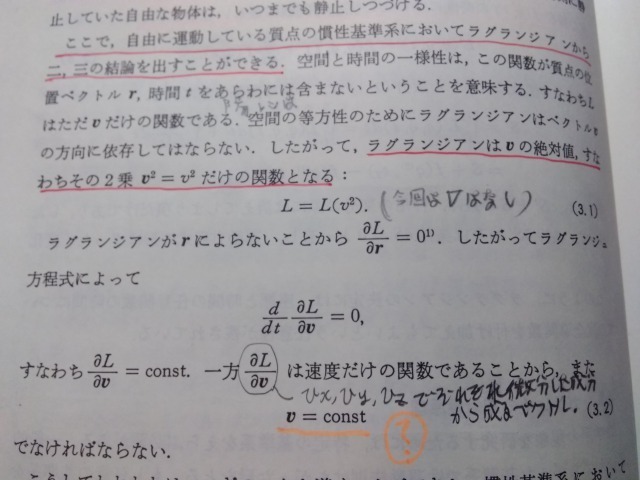 止していた自由な物体は，いつまでも静止しつづける．
ここで，自由に運動している質点の慣性基準系においてラグランジアンから
二，三の結論を出すことができる．空間と時間の一様性は，この関数が質点の位
置ベクトル r，時間 t をあらわには含まないということを意味する．すなわち L
はただ v だけの関数である．空間の等方性のためにラグランジアンはベクトル v
の方向に依存してはならない．したがって，ラグランジアンは v の絶対値，すな
わちその2乗 v² = v² だけの関数となる：
L = L(v²). (今回は∇はなし) (3.1)
ラグランジアンが r によらないことから ∂L/∂r = 0¹⁾．したがってラグランジュ
方程式によって
d/dt ∂L/∂v = 0,
すなわち ∂L/∂v = const. 一方 ∂L/∂v は速度だけの関数であることから，また
vx, vy, vz でそれぞれ微分した成分
から成るベクトル.
v = const (3.2)
?
でなければならない．